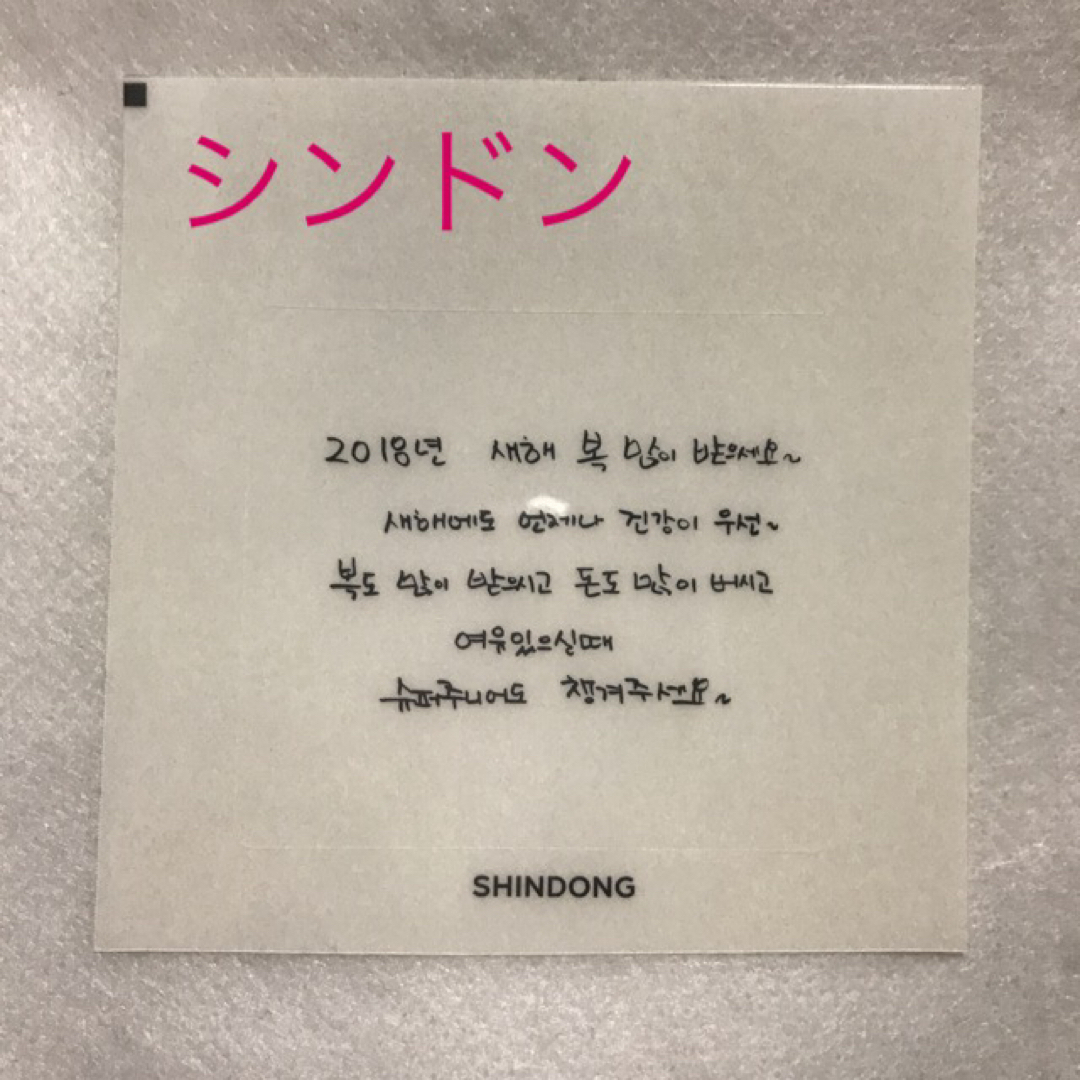 シンドン
2018년 새해 복 많이 받으세요~
새해에도 언제나 건강이 우선~
복도 많이 받으시고 돈도 많이 버시고
여유있으실때
슈퍼주니어도 챙겨주세요~
SHINDONG